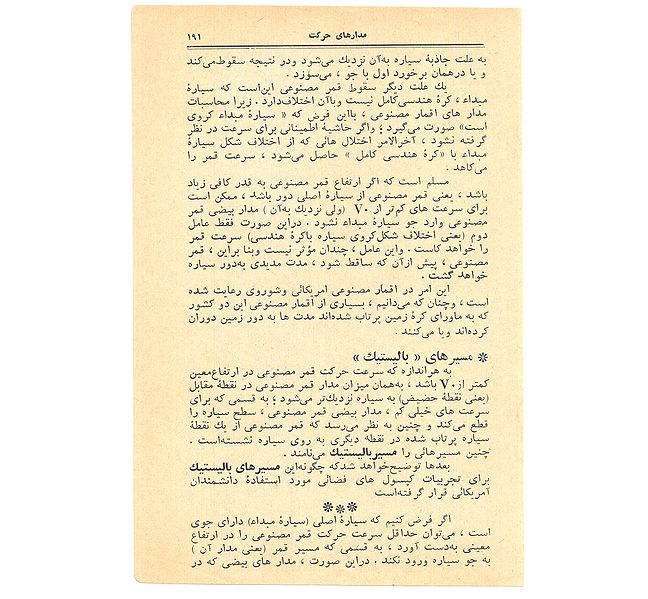 مدارهای حرکت
۱۹۱
به علت جاذبهٔ سیاره به‌آن نزدیك می‌شود ودر نتیجه سقوط‌می‌کند
و یا درهمان برخورد اول با جو ، می‌سوزد .
یك علت دیگر سقوط قمر مصنوعی این‌است که سیارهٔ
مبداء ، کرهٔ هندسی‌کامل نیست وباآن اختلاف‌دارد . زیرا محاسبات
مدار های اقمار مصنوعی ، بااین فرض که « سیارهٔ مبداء کروی
است» صورت می‌گیرد ؛ واگر حاشیهٔ اطمینانی برای سرعت در نظر
گرفته نشود ، آخرالامر اختلال هائی که از اختلاف شکل سیارهٔ
مبداء با «کرهٔ هندسی کامل » حاصل می‌شود ، سرعت قمر را
می‌کاهد .
مسلم است که اگر ارتفاع قمر مصنوعی به قدر کافی زیاد
باشد ، یعنی قمر مصنوعی از سیارهٔ اصلی دور باشد ، ممکن است
برای سرعت های کم‌تر از V۰ (ولی نزدیك به‌آن ) مدار بیضی قمر
مصنوعی وارد جو سیارهٔ مبداء نشود . دراین صورت فقط عامل
دوم (یعنی اختلاف شکل‌کروی سیاره باکرهٔ هندسی) سرعت قمر
را خواهد کاست . واین عامل ، چندان مؤثر نیست وبنا براین ، قمر
مصنوعی ، پیش ازآن که ساقط شود ، مدت مدیدی به‌دور سیاره
خواهد گشت .
این امر در اقمار مصنوعی امریکائی وشوروی رعایت شده
است ، وچنان که می‌دانیم ، بسیاری از اقمار مصنوعی این دو کشور
که به ماورای کرهٔ زمین پرتاب شده‌اند مدت ها به دور زمین دوران
کرده‌اند ویا می‌کنند .
* مسیرهای « بالیستیك »
به هراندازه که سرعت حرکت قمر مصنوعی در ارتفاع‌معین
کمتر از V۰ باشد ، به‌همان میزان مدار قمر مصنوعی در نقطهٔ مقابل
(یعنی نقطهٔ حضیض) به سیاره نزدیك‌تر می‌شود ؛ به قسمی که برای
سرعت های خیلی کم ، مدار بیضی قمر مصنوعی ، سطح سیاره را
قطع می‌کند و چنین به نظر می‌رسد که قمر مصنوعی از یك نقطهٔ
سیاره پرتاب شده در نقطهٔ دیگری به روی سیاره نشسته‌است .
چنین مسیرهائی را مسیربالیستیك می‌نامند .
بعدها توضیح‌خواهد شدکه چگونه‌این مسیرهای بالیستیك
برای تجربیات کپسول های فضائی مورد استفادهٔ دانشمندان
آمریکائی قرار گرفته‌است
***
اگر فرض کنیم که سیارهٔ اصلی (سیارهٔ مبداء) دارای جوی
است ، می‌توان حداقل سرعت حرکت قمر مصنوعی را در ارتفاع
معینی به‌دست آورد ، به قسمی که مسیر قمر (یعنی مدار آن )
به جو سیاره ورود نکند . دراین صورت ، مدار های بیضی که در